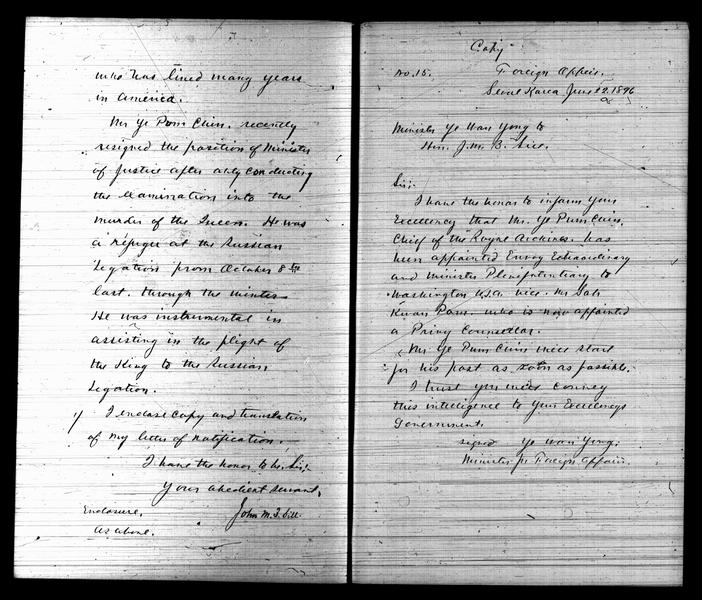 who has lived many years
in America.
Mr Ye Pum Chin. recently
resigned the position of Minister
of Justice after ably conducting
the examination into the
murder of the Queen. He was
a refugee at the Russian
Legation from October 8th
last. through the winter
He was instrumental in
assisting in the flight of
the King to the Russian
Legation.
1/ I enclose copy and translation
of my letter of notification.
I have the honor to be, Sir:
Your obedient servant,
John M. B. Sill.
Enclosure,
as above.
Copy
No. 15. Foreign Office.
Seoul Korea June 22. 1896
Minister Ye Wan Yong to
Hon. J. M. B. Sill.
Sir;
I have the honor to inform your
Excellency that Mr. Ye Pum Chin.
Chief of the Royal Archives. has
been appointed Envoy Extraordinary
and Minister Plenipotentiary to
Washington U.S.A. vice. Mr Soh
Kwan Pom. who is now appointed
a Privy Counsellor.
Mr Ye Pum Chin will start
for his post as soon as possible.
I trust you will convey
this intelligence to your Excellency's
Government.
signed Ye Wan Yong.
Minister for Foreign Affairs.